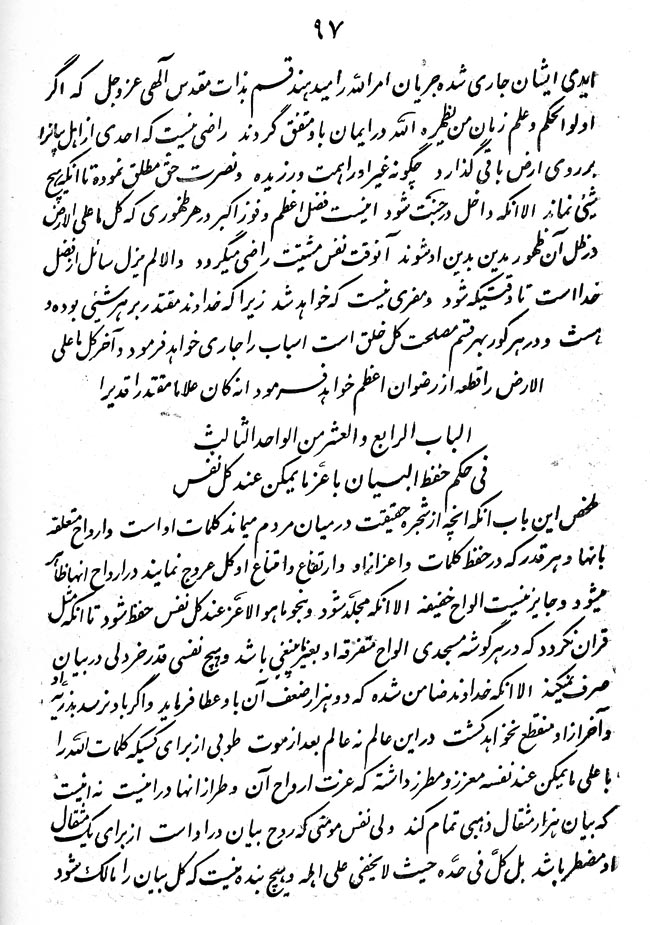 ۹۷
ایدی ایشان جاری شده جریان امرالله را میدهند قسم بذات مقدس الهی عزوجل که اگر
اولو الحکم و علم زمان من یظهره الله در ایمان باو متفق گردند راضی نیست که احدی از اهل بیانرا
بر روی ارض باقی گذارد چگونه غیر او را همت ورزیده و نصرت حق مطلق نموده تا آنکه هیچ
شیئی نماند الا آنکه داخل در جنت شود اینست فضل اعظم و فوز اکبر در هر ظهوری که کل ما علی الارض
در ظل آن ظهور بدین بدین او شوند آنوقت نفس مشیت راضی میگردد والا لم یزل سائل از فضل
خدا است تا وقتیکه شود و مفری نیست که خواهد شد زیرا که خداوند مقتدر بر هر شیئی بوده و
هست و در هر کور بهر قسم مصلحت کل خلق است اسباب را جاری خواهد فرمود و آخر کل ما علی
الارض را قطعه از رضوان اعظم خواهد فرمود انه کان علاما مقتدرا قدیرا
الباب الرابع والعشر من الواحد الثالث
فی حکم حفظ البیان باعز ما یمکن عند کل نفس
ملخص این باب آنکه آنچه از شجره حقیقت در میان مردم میماند کلمات او است و ارواح متعلقه
بانها و هر قدر که در حفظ کلمات و اعزاز او و ارتفاع و امتناع او کل عروج نمایند در ارواح انها ظاهر
میشود و جایز نیست الواح خفیفه الا آنکه مجلد شود و بنحو ما هو الاعز عند کل نفس حفظ شود تا آنکه مثل
قران نگردد که در هر گوشه مسجدی الواح متفرقه او بغیر باشد و هیچ نفسی قدر خردلی در بیان
صرف نمیکند الا آنکه خداوند ضامن شده که دو هزار ضعف آن باو عطا فرماید و اگر باو نرسد بذریه او
و آخر از او منقطع نخواهد گشت در این عالم نه عالم بعد از موت طوبی از برای کسیکه کلمات الله را
با علی ما یمکن عند نفسه معزز و مطرز داشته که عزت ارواح آن و طراز انها در اینست نه اینست
که بیان هزار مثقال ذهبی تمام کند ولی نفس مومنی که روح بیان در او است از برای یک مثقال
او مضطر باشد بل کل فی حده حیث لا یخفی علی اهله و هیچ بنده نیست که کل بیان را مالک شود